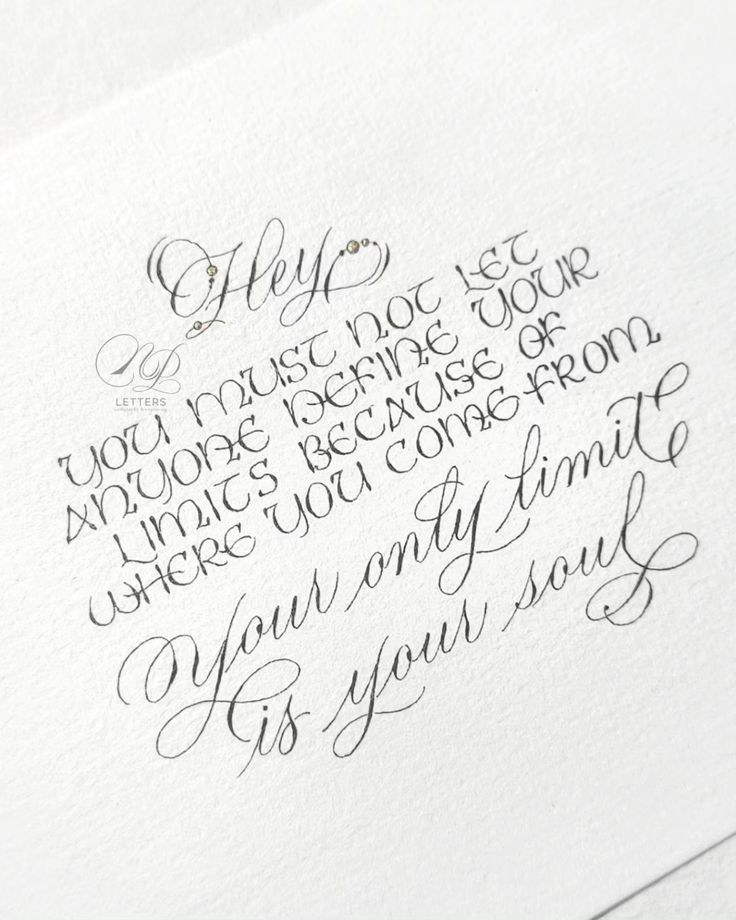 Hey
YOU MUST NOT LET
ANYONE DEFINE YOUR
LIMITS BECAUSE OF
WHERE YOU COME FROM
Your only limit
is your soul
NP
LETTERS